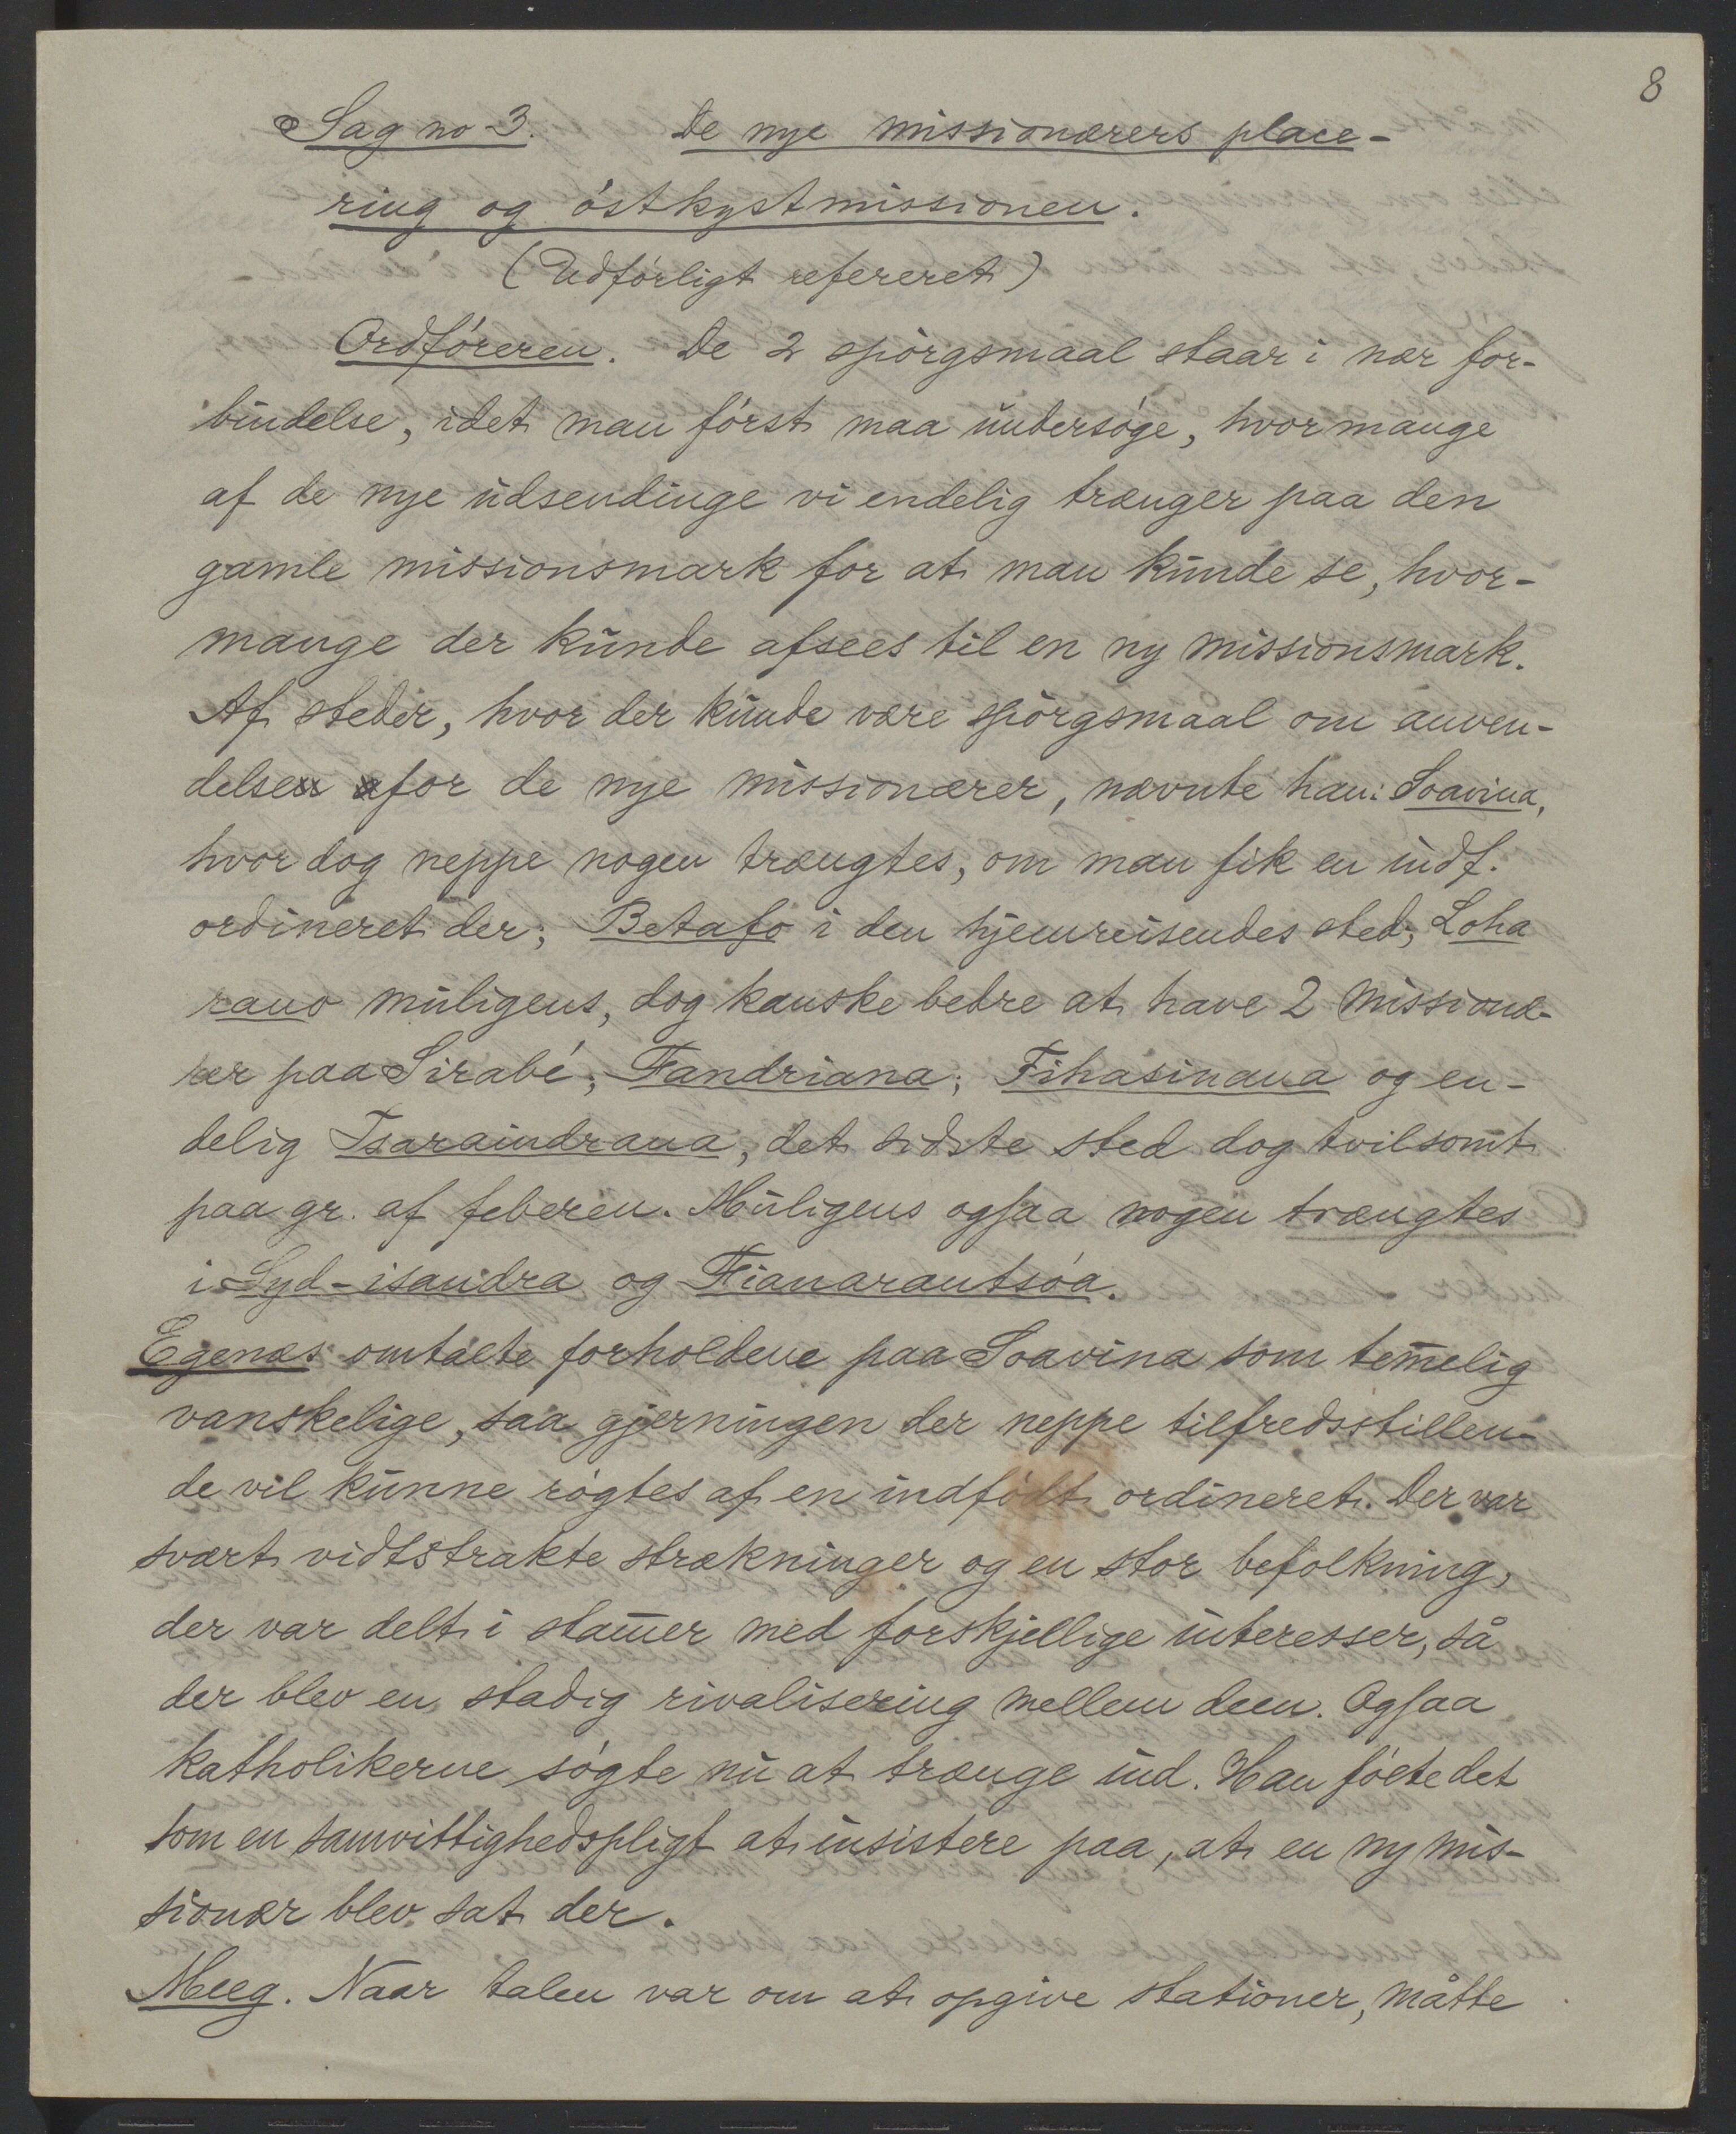 8
Sag no 3. De nye missionærers place-
ring og óstkystmissionen.
(Udførligt refereret)
Ordføreren. De 2 spørgsmaal staar i nær for-
bindelse, idet man først maa undersøge, hvormange
af de nye udsendinge vi endelig trænger paa den
gamle missionsmark for at man kunde se, hvor-
mange der kunde afsees til en ny missionsmark.
Af steder, hvor der kunde være spørgsmaal om anven-
delse for de nye missionærer, nævnte han: Soavina,
hvor dog neppe nogen trængtes, om man fik en indf.
ordineret der; Betafo i den hjemreisendes sted; Loha
rano muligens, dog kanske bedre at have 2 missionæ-
rer paa Sirabé; Fandriana; Fihasinana og en-
delig Tsaraindrana, det sidste sted dog tvilsomt
paa gr. af feberen. Muligens ogsaa nogen trængtes
i Syd-isandra og Fianarantsóa.
Egenæs omtalte forholdene paa Soavina som temelig
vanskelige, saa gjerningen der neppe tilfredsstillen-
de vil kunne røgtes af en indfødt ordineret. Der var
svært vidtstrakte strækninger og en stor befolkning,
der var delt i stamer med forskjellige interesser, så
der blev en stadig rivalisering mellem deen. Ogsaa
katholikerne søgte nu at trænge ind. Han følte det
som en samvittighedspligt at insistere paa, at en ny mis-
sionær blev sat der.
Meeg. Naar talen var om at opgive stationer, måtte